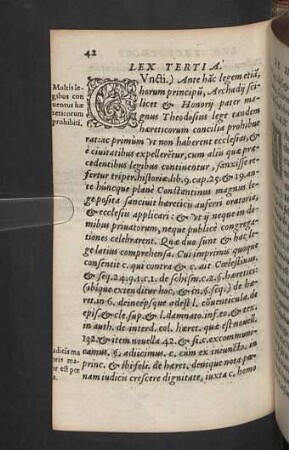 42
LEX TERTIA.
Multis le-
gibus con
uentus hæ
reticorum
prohibiti.
CVncti.) Ante hāc legem etiā,
horum principū, Archadij sci-
licet & Honorij pater ma-
gnus Theodosius lege tandem
hæreticorum concilia prohibue
rat: ac primum vt non haberent ecclesias, &
è ciuitatibus expelleretur, cum alijs quæ præ-
cedentibus legibus continentur, sanxisse re-
fertur triper. historiæ lib. 9. cap. 25. & 19. an-
te huncque planè Constantinus magnus le-
ge posita sanciuit hæreticis auferri oratoria,
& ecclesijs applicari: & vt ij neque in do-
mibus priuatorum, neque publicè congrega-
tiones celebrarent. Quæ duo sunt & hac le-
ge latius comprehensa. Cui imprimis quoque
consentit c. qui contra & c. ait Cælestinus,
& seq. 24. q. 1. c. 1. de schism. c. 2. §. hæretici:
(ibique extenditur hoc, & in §. seq.) de hæ-
ret. in 6. deinceps que est l. cōuenticula. de
epis & cle. sup. & l. damnato. inf. eo. & tex.
in auth. de interd. col. hæret. quæ est nouell.
192. & item nouella 42. & si. c. excommuni-
camus. §. adijcimus. c. cum ex iniuncto. in
princ. & ibi feli. de hæret. denique nota pœ-
nam iudicij crescere dignitate, iuxta c. homo